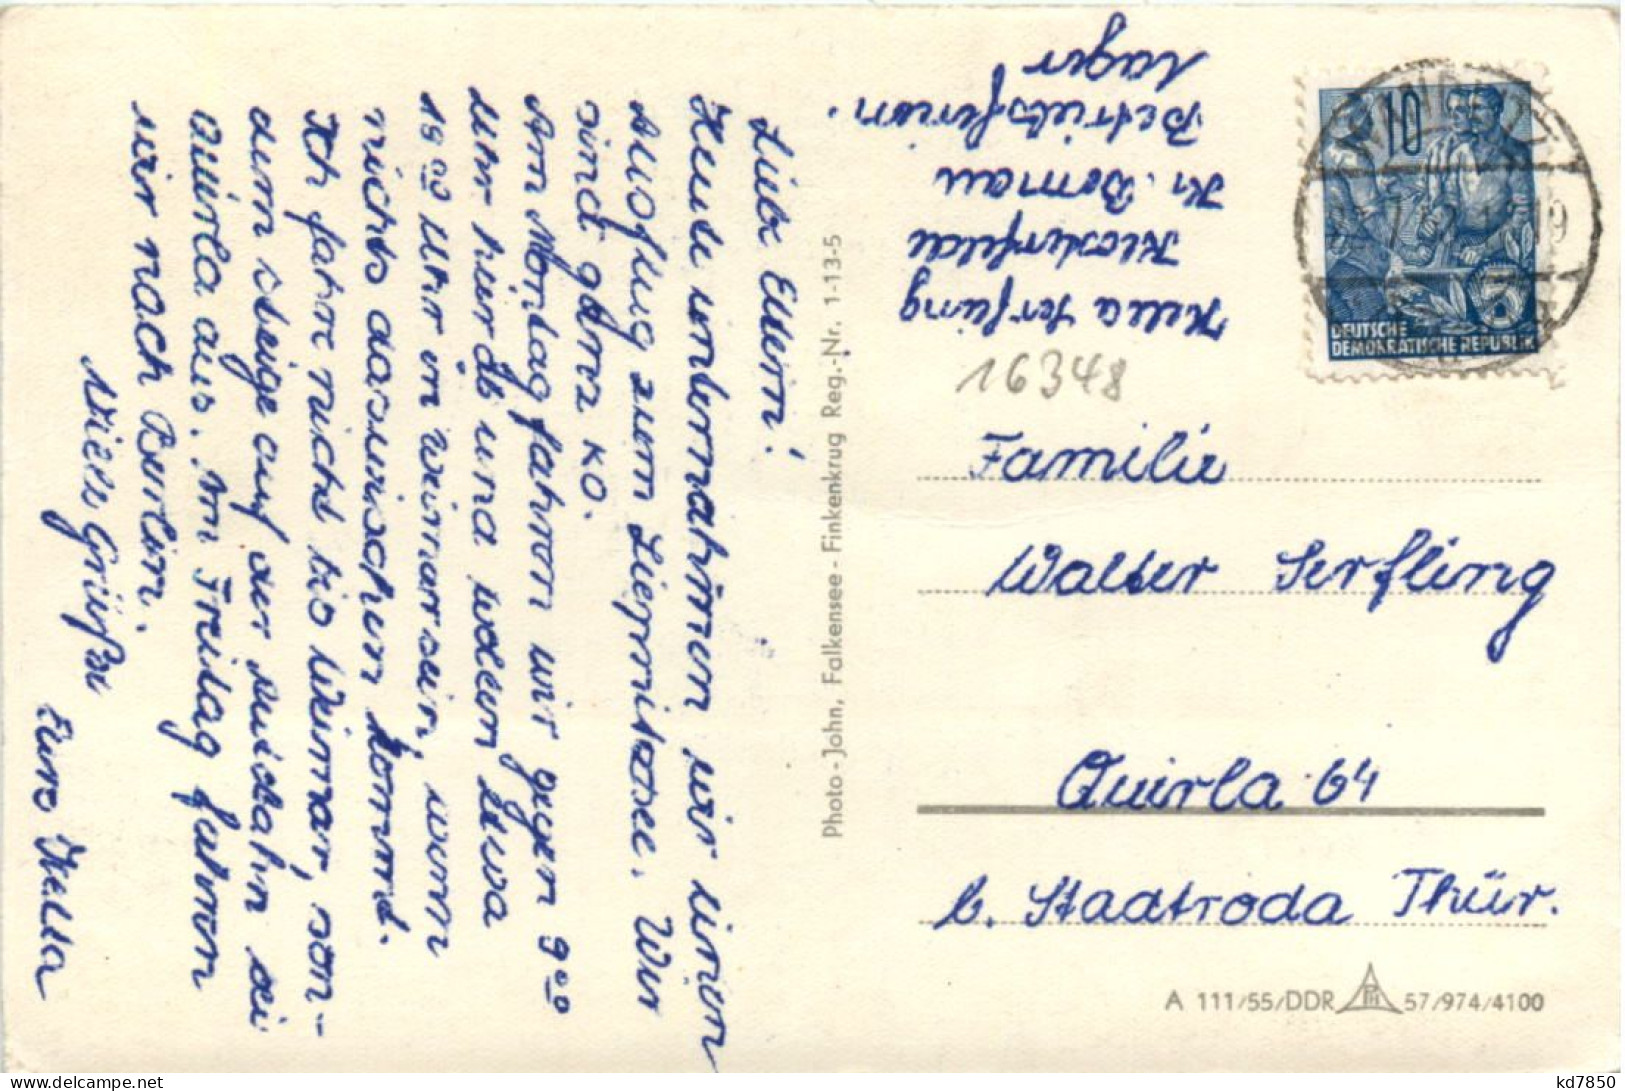 Liebe Eltern!
Heute unternahmen wir einen
Ausflug zum Liepnitzsee. Wir
sind ganz ko.
Am Montag fahren wir gegen 9⁰⁰
Uhr hier ab und wollen etwa
19⁰⁰ Uhr in Weimar sein, wenn
nichts dazwischen kommt.
Ich fahre nicht bis Weimar, son-
dern steige auf der
Quirla aus. Am Freitag fahren
wir nach Berlin.
Viele Grüße
Eure Hella
Photo-John, Falkensee-Finkenkrug Reg.-Nr. 1-13-5
Hella Serfling
Klosterfelde
Kr. Bernau
Betriebsferien.
lager
16348
10
DEUTSCHE
DEMOKRATISCHE REPUBLIK
Familie
Walter Serfling
Quirla 64
b. Stadtroda Thür.
A 111/55/DDR 57/974/4100
kd7850